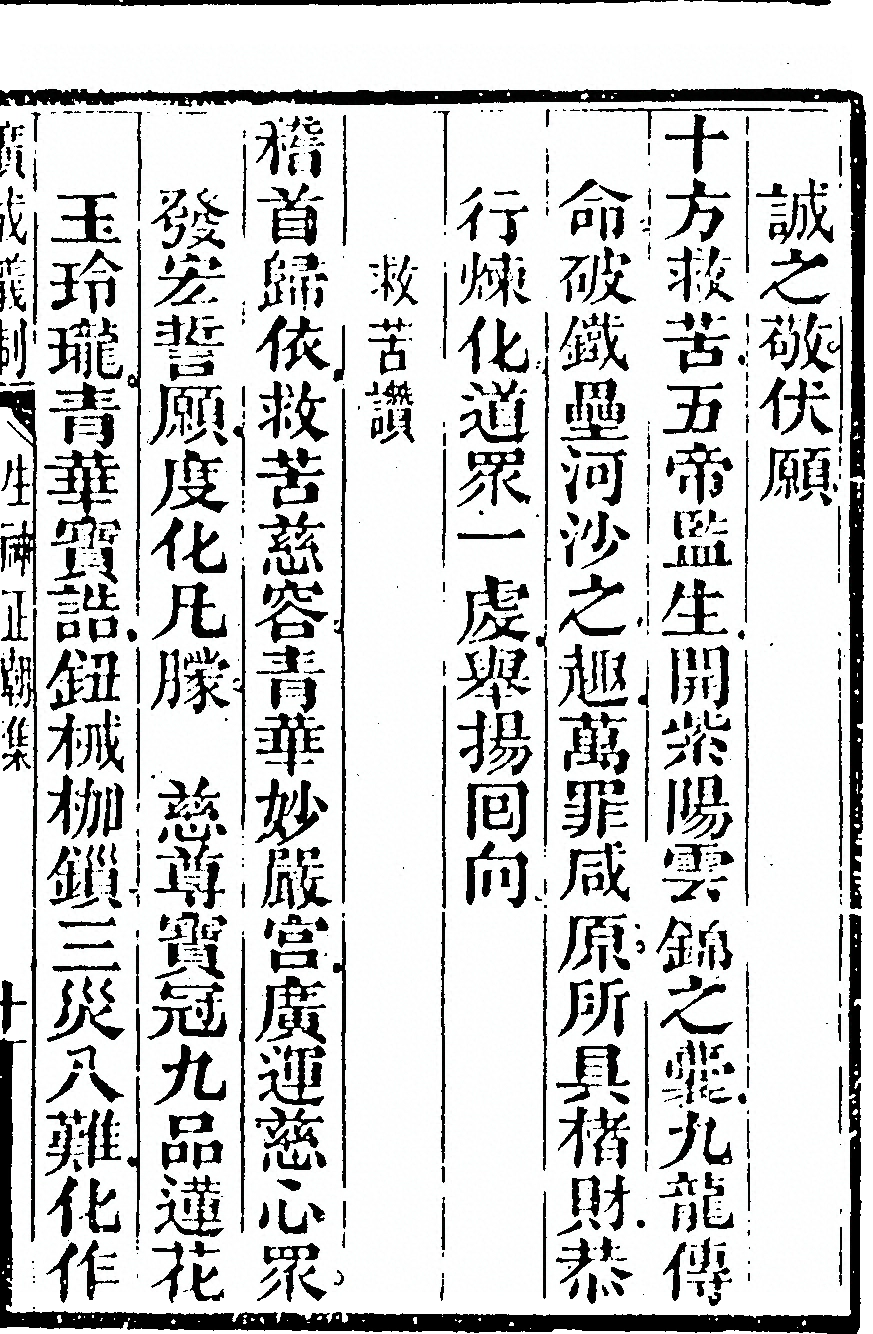 誠之敬伏願
十方救苦五帝監生開紫陽雲錦之囊九龍傳
命破鐵壘河沙之趣萬罪咸原所具楮財恭
行煉化道眾一處舉揚回向
救苦讚
稽首歸依救苦慈容青華妙嚴宮廣運慈心眾
發宏誓願度化凡朦　慈尊寶冠九品蓮花
玉玲瓏青華寶誥鈕械枷鎖三災八難化作
廣成儀制　生神正朝集　十